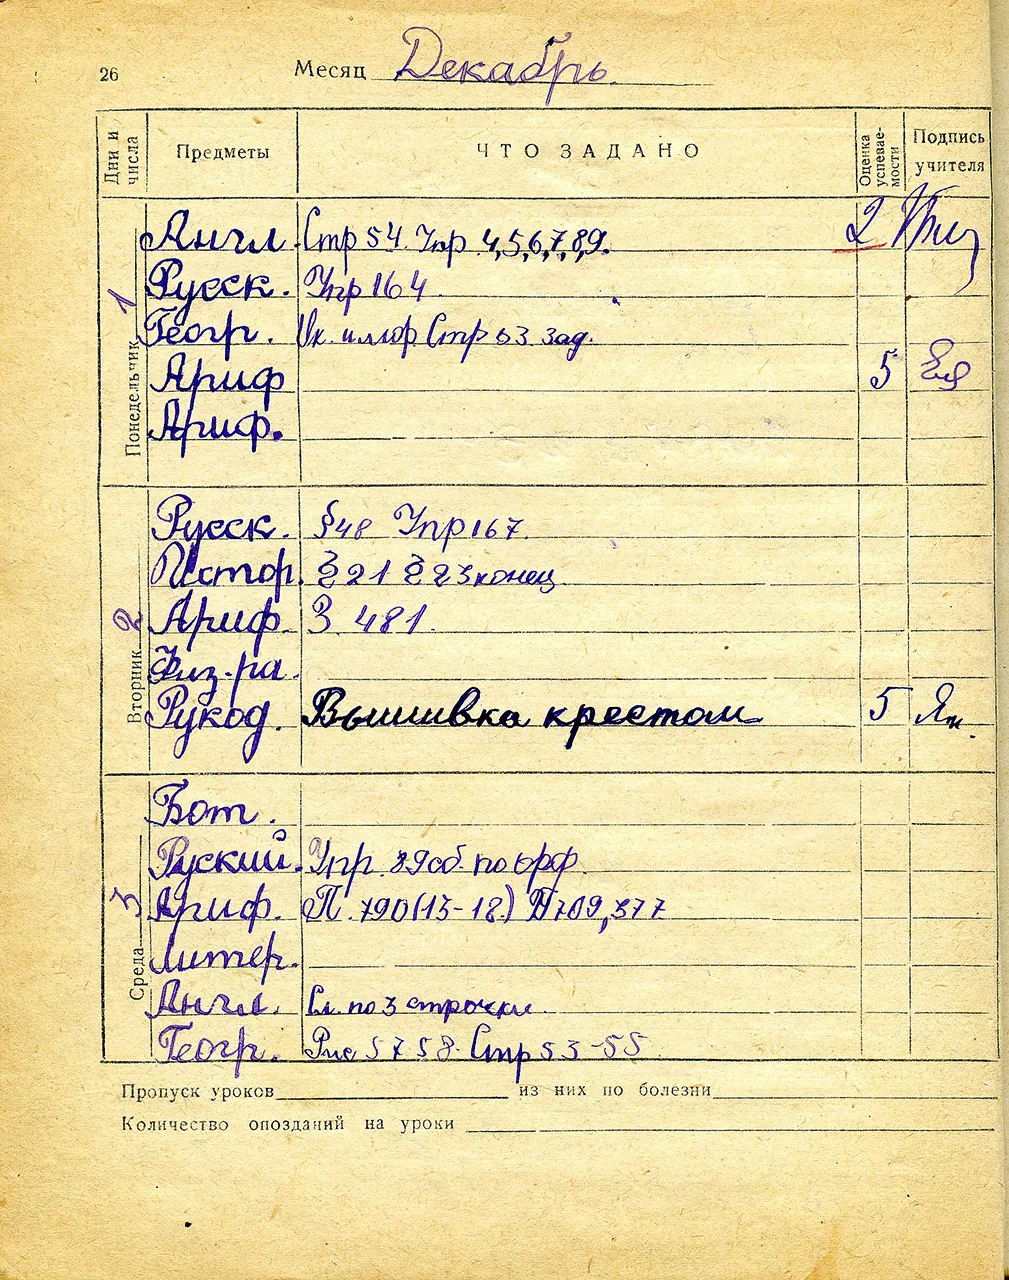 26 Месяц Декабрь
Дни и числа Предметы ЧТО ЗАДАНО Оценка успевае-мости Подпись учителя
Понедельник 1
Англ. Стр 54. Упр 4,5,6,7,8,9. 2
Русск. Упр 164
Геогр. Ок. и мор Стр 53. зад.
Ариф 5
Ариф.
Вторник 2
Русск. §48 Упр 167.
Истор. § 21 § 23 конец
Ариф. З. 481.
Физ-ра.
Рукод. Вышивка крестом 5
Среда 3
Бот.
Руский. Упр. 89 сб. по орф.
Ариф. П. 790(13-18.) № 709,377
Литер.
Англ. Сл. по 3 строчки.
Геогр. Рис 57 58. Стр 53-55
Пропуск уроков из них по болезни
Количество опозданий на уроки